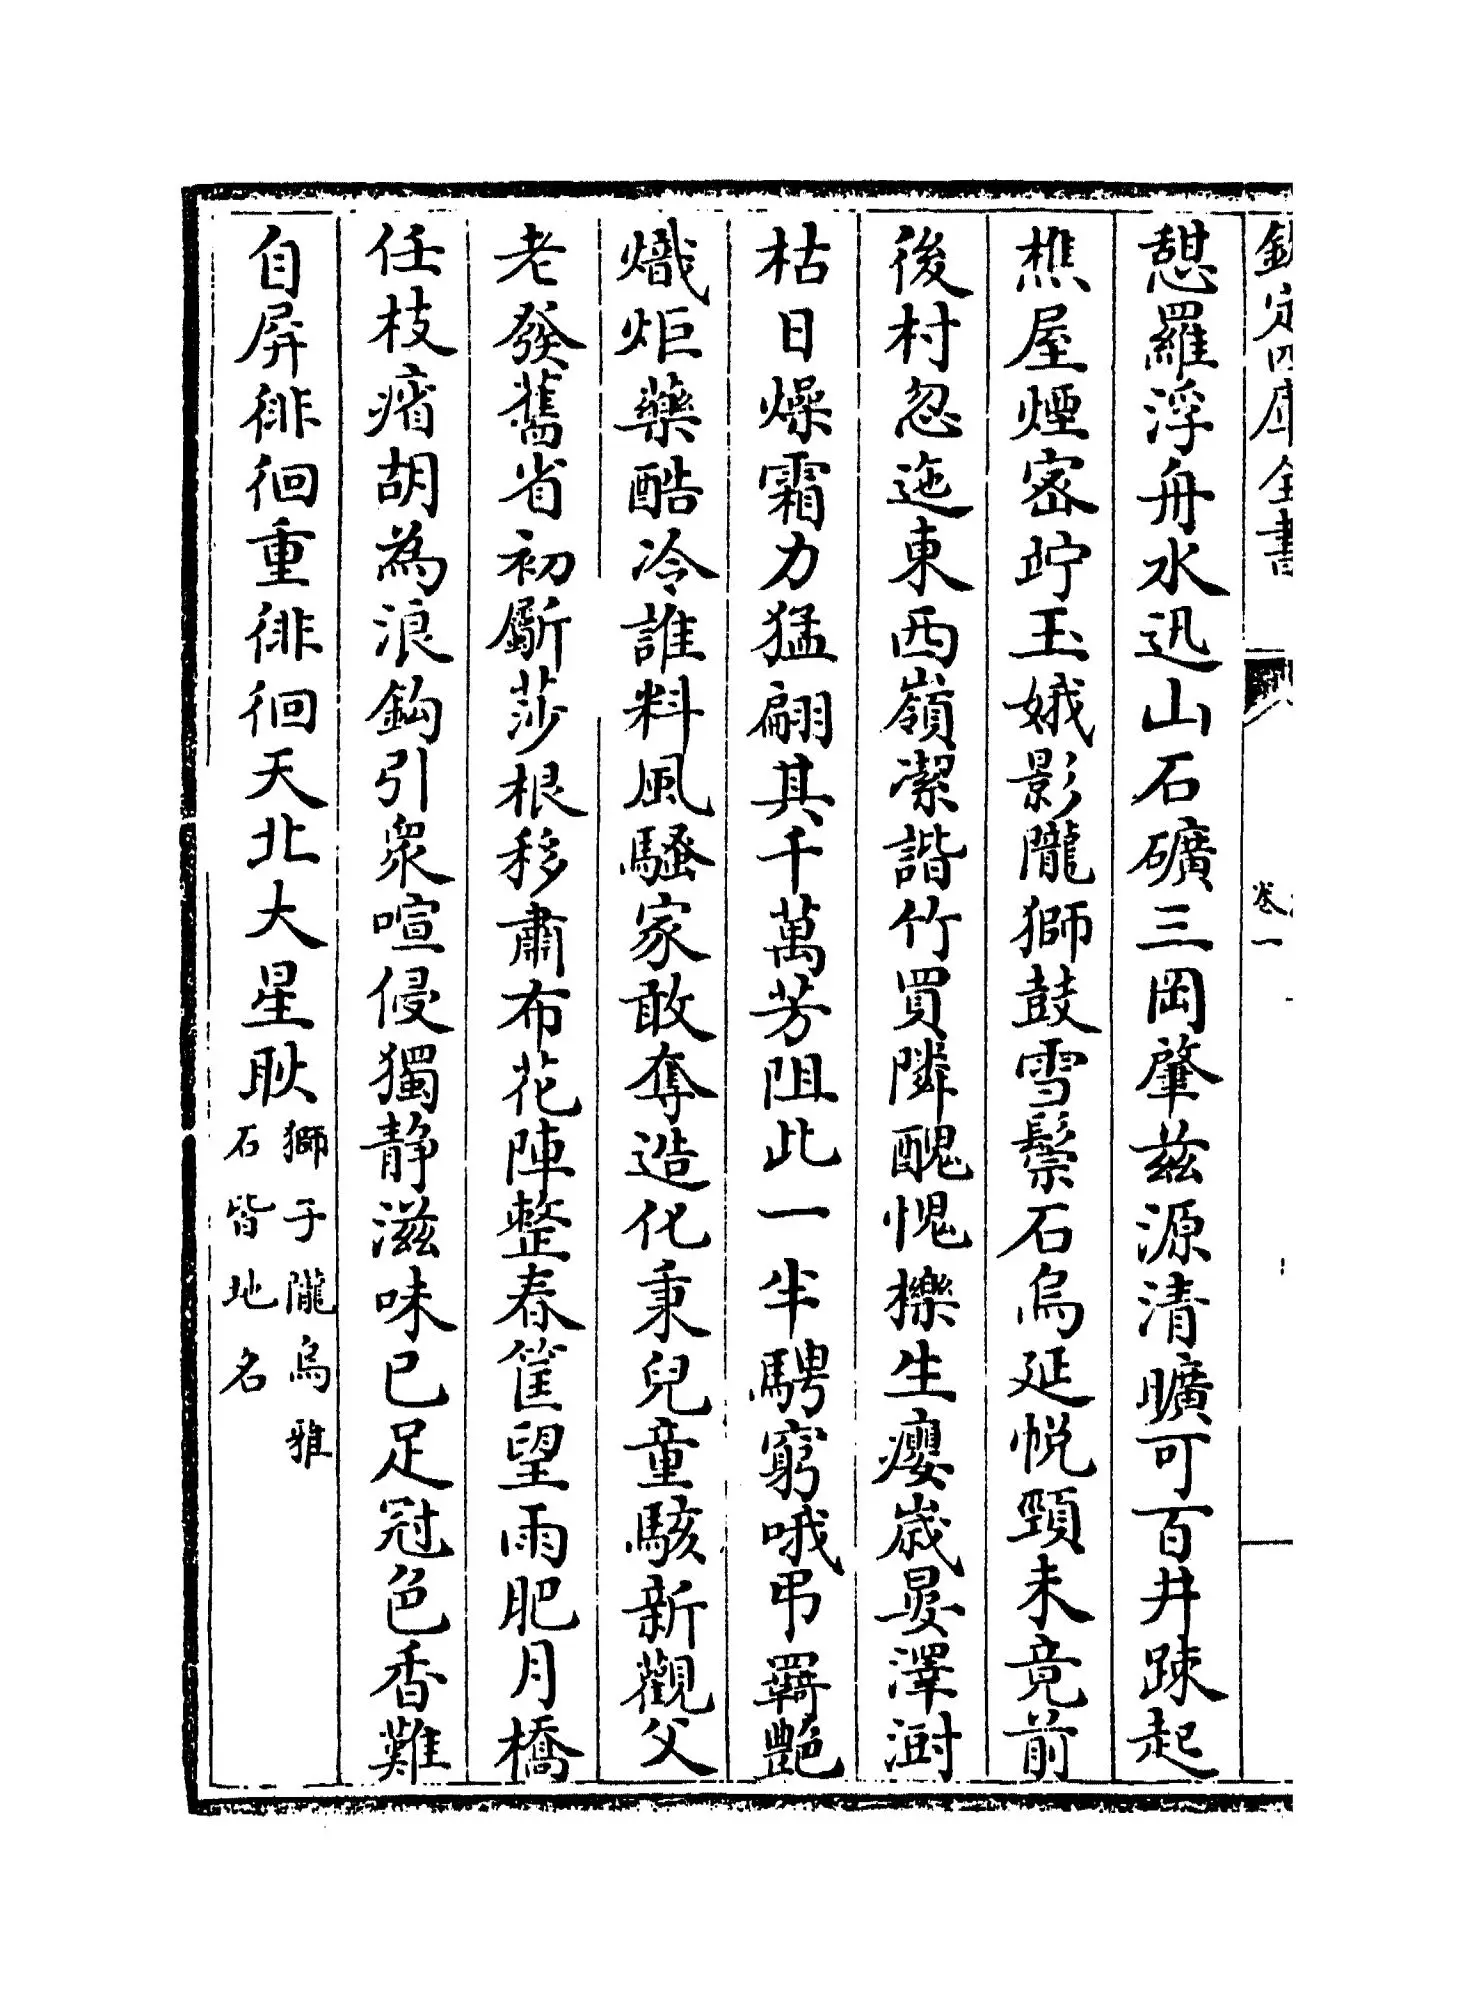 欽定四庫全書
卷一
憇羅浮舟水迅山石礦三岡肇兹源清曠可百井踈起
樵屋煙密竚玉娥影隴獅鼓雪鬃石烏延悦頸未竟前
後村忽迤東西嶺潔諧竹買隣醜愧櫟生癭歳晏澤澍
枯日燥霜力猛翩其千萬芳阻此一半騁窮哦弔羇艷
熾炬藥酷冷誰料風騷家敢奪造化秉兒童駭新觀父
老發舊省初斸莎根移肅布花陣整春筐望雨肥月橋
任枝瘠胡為浪鈎引衆喧侵獨静滋味已足冠色香難
自屏徘徊重徘徊天北大星耿獅子隴烏雅
石皆地名